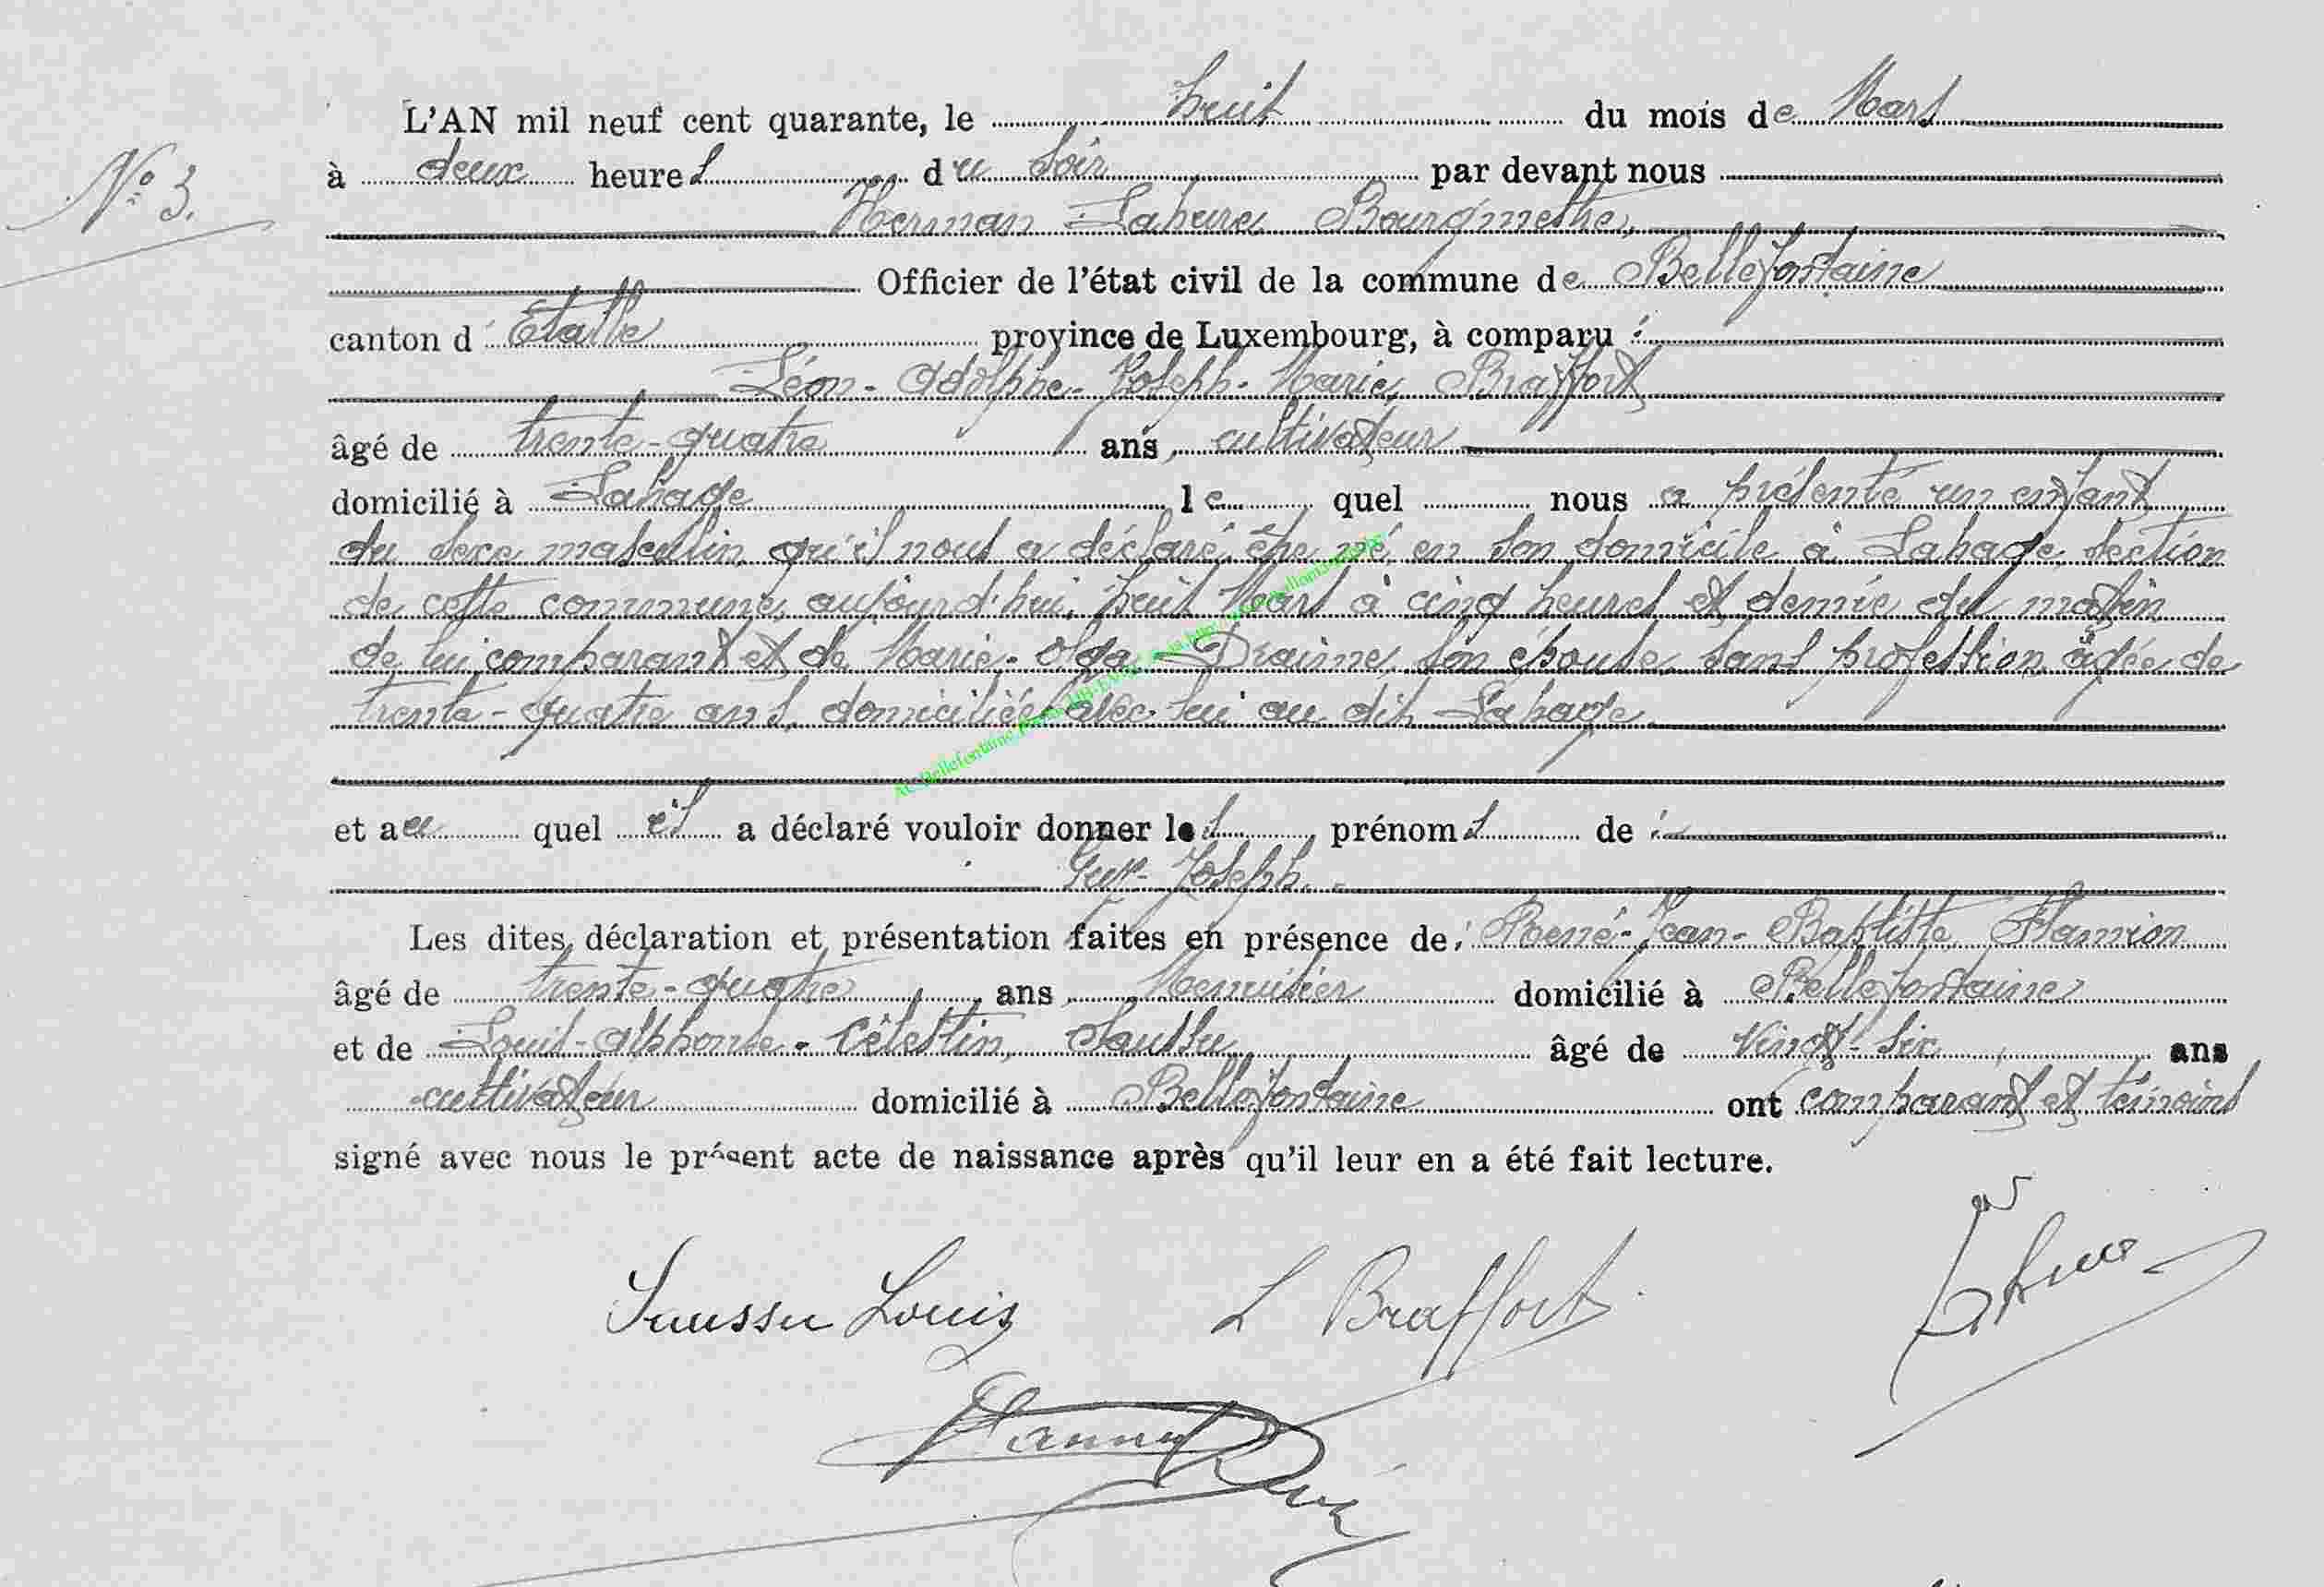 L'AN mil neuf cent quarante, le huit du mois de Mars
N° 3.
à deux heures du soir par devant nous
Herman Lahure, Bourgmestre,
Officier de l'état civil de la commune de Bellefontaine
canton d'Etalle province de Luxembourg, à comparu :
Léon-Adolphe-Joseph-Marie, Braffort
âgé de trente-quatre ans, cultivateur
domicilié à Lahage lequel nous a présenté un enfant
du sexe masculin, qu'il nous a déclaré être né en son domicile à Lahage, section
de cette commune, aujourd'hui, huit Mars à cinq heures et demie du matin
de lui comparant et de Marie-Olga, Draime, son épouse, sans profession, âgée de
trente-quatre ans, domiciliée avec lui au dit Lahage.
et au quel il a déclaré vouloir donner les prénoms de :
Guy-Joseph.
Les dites déclaration et présentation faites en présence de : René-Jean-Baptiste Flamion
âgé de trente-quatre ans, Menuisier domicilié à Bellefontaine
et de Louis-Alphonse-Célestin, Saussu âgé de vingt-six, ans
cultivateur domicilié à Bellefontaine ont comparant et témoins
signé avec nous le présent acte de naissance après qu'il leur en a été fait lecture.
Saussu Louis L Braffort